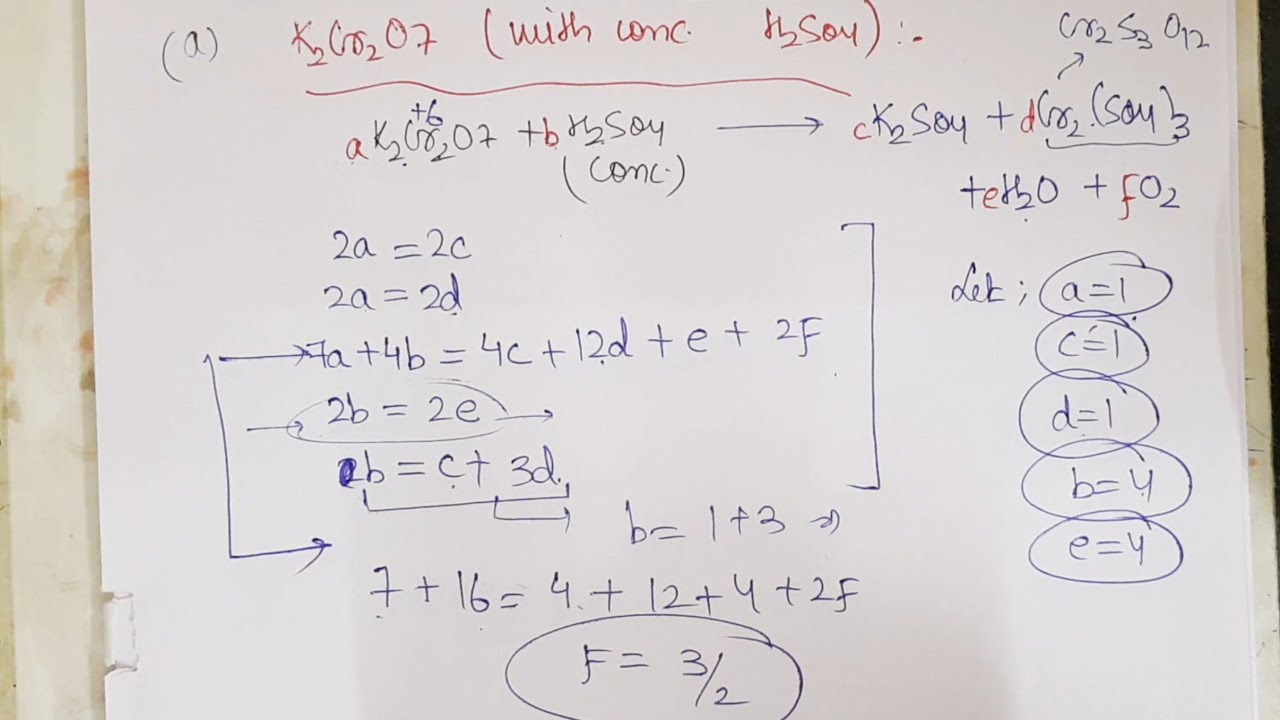 (a) K2Cr2O7 (with conc. H2SO4) :-
Cr2S3O12
+6
aK2Cr2O7 + bH2SO4 → cK2SO4 + dCr2(SO4)3
(conc.)
+ eH2O + fO2
2a = 2c
2a = 2d
7a + 4b = 4c + 12d + e + 2F
2b = 2e
b = c + 3d
Let ; a=1
c=1
d=1
b=4
e=4
b = 1+3 ⇒
7 + 16 = 4 + 12 + 4 + 2F
F = 3/2